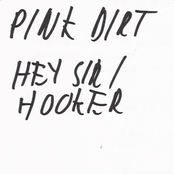 PINK DIRT
HEY SIR/
HOOKER